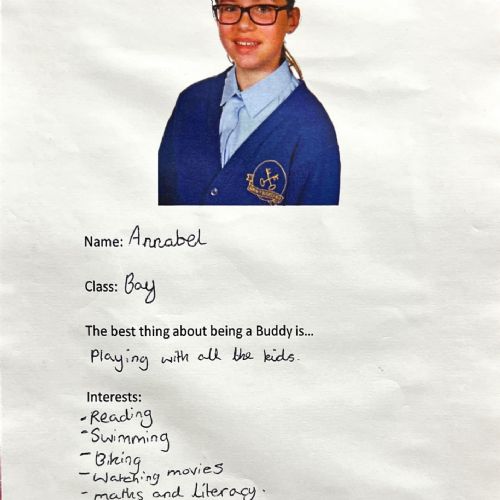 Name: Annabel
Class: Bay
The best thing about being a Buddy is...
Playing with all the kids.
Interests:
- Reading
- Swimming
- Biking
- Watching movies
- maths and literacy.